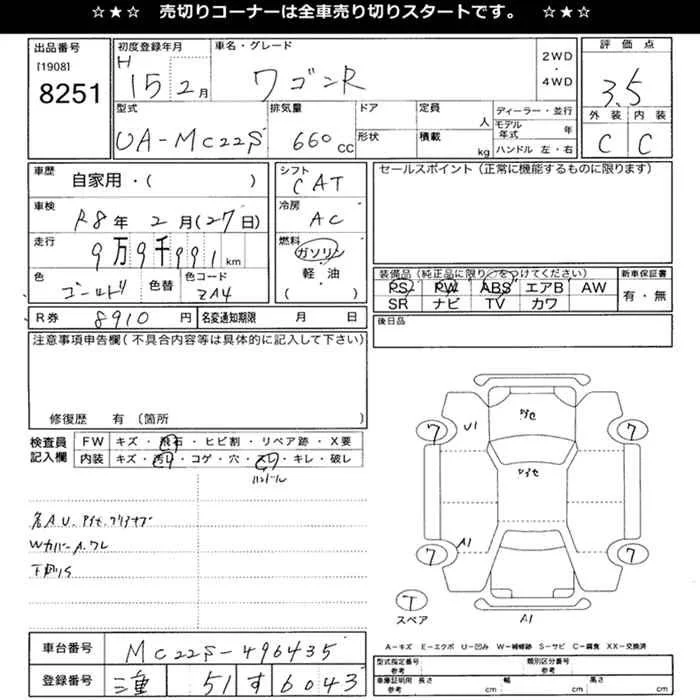 ☆★☆ 売切りコーナーは全車売り切りスタートです。 ☆★☆
出品番号
[1908]
8251
初度登録年月
H 15 2月
車名・グレード
ワゴンR
2WD
・
4WD
評価点
3.5
外装 内装
C C
型式
UA-MC22S
排気量
660cc
ドア
形状
定員
人
積載
kg
ディーラー・並行
モデル年式 年
ハンドル 左・右
車歴
自家用・( )
車検
R8年 2月(27日)
走行
9万9千991km
色
ゴールド
色替
色コード
ZA4
シフト
CAT
冷房
AC
燃料
ガソリン
・
軽・油
( )
セールスポイント(正常に機能するものに限ります)
装備品(純正品に限り○をつけてください)
PS PW ABS エアB AW
SR ナビ TV カワ
新車保証書
有・無
後日品
R券 8910円
名変通知期限 月 日
注意事項申告欄(不具合内容等は具体的に記入して下さい)
修復歴 有(箇所 )
検査員記入欄
FW キズ・飛石・ヒビ割・リペア跡・X要
内装 キズ・汚れ・コゲ・穴・スレ・キレ・破レ
ハンドル
Wカバー A.ワレ
下廻りS
アセ
アセ
U1
A1
A1
7 7
7 7
T
スペア
A−キズ E−エクボ U−凹み W−補修跡 S−サビ C−腐食 XX−交換済
車台番号
MC22S-496435
登録番号
三重 51 す 6043
型式指定番号
参考
類別区分番号
参考
車庫証明用
参考
長さ cm
幅 cm
高さ cm